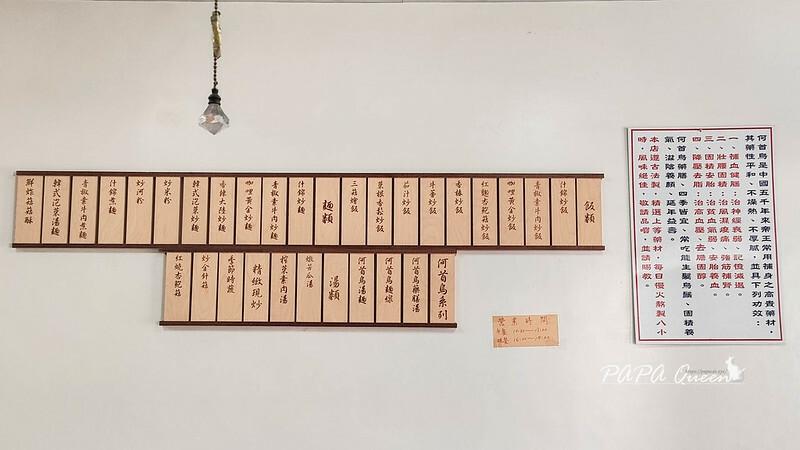 飯類
什錦炒飯
青椒素牛肉炒飯
咖哩黃金炒飯
紅麴杏鮑菇炒飯
香椿炒飯
牛蒡炒飯
茄汁炒飯
菜根香鬆炒飯
三菇燴飯
麵類
什錦炒麵
青椒素牛肉炒麵
咖哩黃金炒麵
香辣大陸炒麵
韓式泡菜炒麵
炒米粉
炒河粉
什錦煮麵
青椒素牛肉煮麵
韓式泡菜湯麵
鮮炸菇菇酥
何首烏系列
何首烏藥膳湯
何首烏麵線
何首烏湯麵
湯類
燉苦瓜湯
榨菜素肉湯
精緻現炒
季節時蔬
炒金針菇
紅燒杏鮑菇
營業時間
何首烏是中國五千年來帝王常用補身之高貴藥材，
其藥性平和、不燥熱、不厚膩，並具下列功效：
一、補血健腦：治神經衰弱、記憶減退。
二、壯腰固精：治風濕痠痛、強筋補腎。
三、固精安胎：治貧血氣弱、安胎養血。
四、降壓去脂：治高血壓、去膽固醇。
何首烏藥膳、四季皆宜、常吃能生髮烏鬚、固精養
氣、滋陰養顏、延年益壽。
本店遵古法製，精選上等藥材，每日慢火熬製八小
時，風味絕佳，敬請品嚐，並請賜教。
PAPA Queen